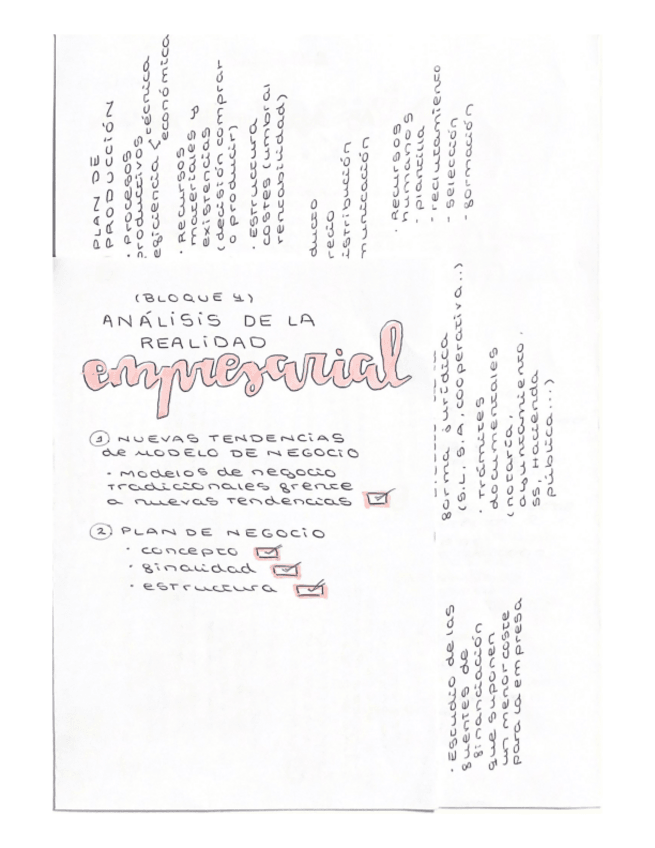 (BLOQUE 4)
ANÁLISIS DE LA
REALIDAD
empresarial
① NUEVAS TENDENCIAS
de MODELO DE NEGOCIO
· Modelos de negocio
tradicionales frente
a nuevas tendencias
② PLAN DE NEGOCIO
· concepto
· finalidad
· estructura
PLAN DE
PRODUCCIÓN
· Procesos
productivos
eficiencia < técnica
económica
· Recursos
materiales y
existencias
(decisión comprar
o producir)
· Estructura
costes (umbral
rentabilidad)
ducto
recio
istribución
municación
· Recursos
humanos
- plantilla
- reclutamiento
- selección
- formación
forma jurídica
(S.L, S.A, cooperativa...)
· Trámites
documentales
(notaría,
ayuntamiento,
SS, Hacienda
pública...)
· Estudio de las
fuentes de
financiación
que suponen
un menor coste
para la empresa